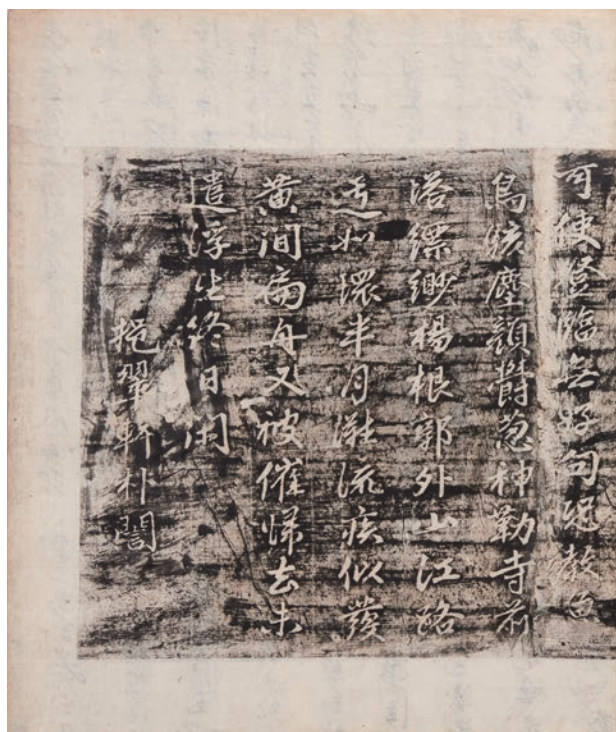 可使登臨無好句恐教
鳥駭塵顏鬱葱神勒寺前
塔縹緲楊根郭外山江路
如環半月灘流疾似發
黃間扁舟又被催歸去未
遣浮生終日閑
挹翠軒朴誾